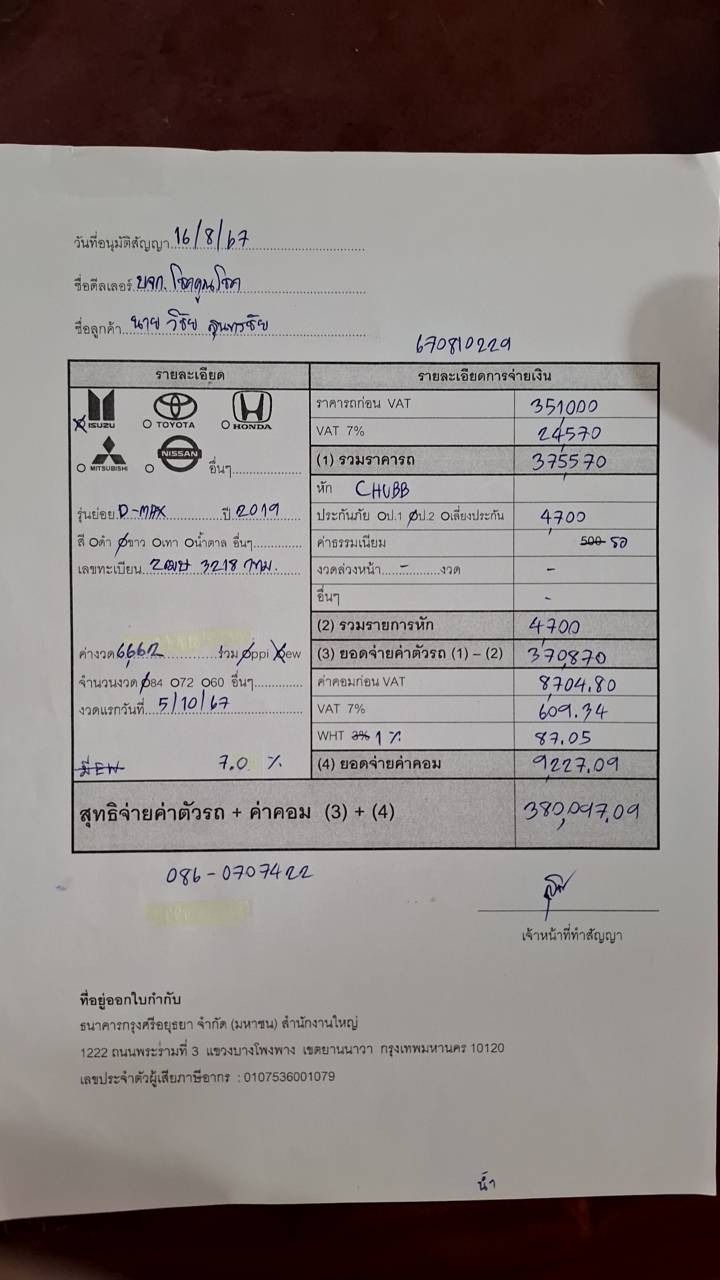 วันที่อนุมัติสัญญา 16/8/67
ชื่อดีลเลอร์ บจก. โชคคูณโชค
ชื่อลูกค้า นาย วิชัย สุนทรชัย
670810229
รายละเอียด
รายละเอียดการจ่ายเงิน
ISUZU TOYOTA HONDA
MITSUBISHI NISSAN อื่นๆ
รุ่นย่อย D-MAX ปี 2019
สี ดำ ขาว เทา น้ำตาล อื่นๆ
เลขทะเบียน 3218 กทม.
ค่างวด 6,662 รวม ppi ew
จำนวนงวด 84 72 60 อื่นๆ
งวดแรกวันที่ 5/10/67
มี EW 7.0 %
ราคารถก่อน VAT 351,000
VAT 7% 24,570
(1) รวมราคารถ 375,570
หัก CHUBB
ประกันภัย ป.1 ป.2 เลี่ยงประกัน 4,700
ค่าธรรมเนียม 500 รอ
งวดล่วงหน้า - งวด -
อื่นๆ -
(2) รวมรายการหัก 4,700
(3) ยอดจ่ายค่าตัวรถ (1) – (2) 370,870
ค่าคอมก่อน VAT 8,704.80
VAT 7% 609.34
WHT 3% 1 % 87.05
(4) ยอดจ่ายค่าคอม 9,227.09
สุทธิจ่ายค่าตัวรถ + ค่าคอม (3) + (4) 380,097.09
086-0707422
เจ้าหน้าที่ทำสัญญา
ที่อยู่ออกใบกำกับ
ธนาคารกรุงศรีอยุธยา จำกัด (มหาชน) สำนักงานใหญ่
1222 ถนนพระรามที่ 3 แขวงบางโพงพาง เขตยานนาวา กรุงเทพมหานคร 10120
เลขประจำตัวผู้เสียภาษีอากร : 0107536001079
น้ำ